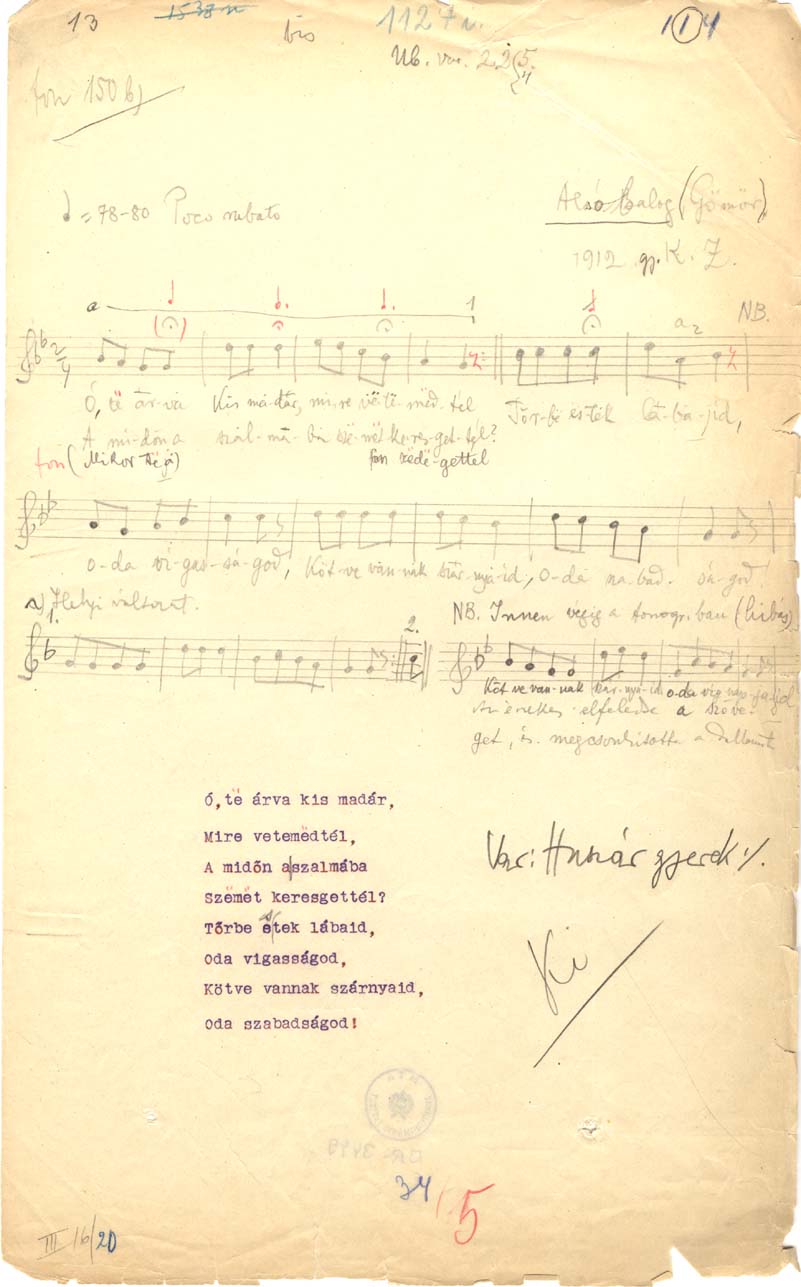 13 1538 bis 1127 i. 114
Ub. var. 225.
fon 150 b)
= 78-80 Poco rubato
Alsó Balog (Gömör)
1912 gy. K. Z.
a 1
NB.
a 2
Ó, të ár-va Kis ma-dár, mi-re ve-te-mëd-tél Tőr-be es-tek lá-ba-id,
A mi-dőn a szal-má-ba szë-mët ke-res-get-tél?
fon (Mikor fon szëdë-gettel
o-da vi-gas-sá-god, Köt-ve van-nak szár-nya-id, o-da sza-bad-sá-god!
a) Helyi változat.
NB. Innen végig a fonogr.ban (hibás)
1. 2.
Köt ve van-nak szár-nya-id o-da
Az énekes elfeledte a szöve-
get, és megcsonkította a dallamot
Ó,të árva kis madár,
Mire vetemëdtél,
A midőn a szalmába
Szëmët keresgettél?
Tőrbe estek lábaid,
Oda vigasságod,
Kötve vannak szárnyaid,
Oda szabadságod!
Var: Huszár gyerek
Ki
34 5
III 16/20